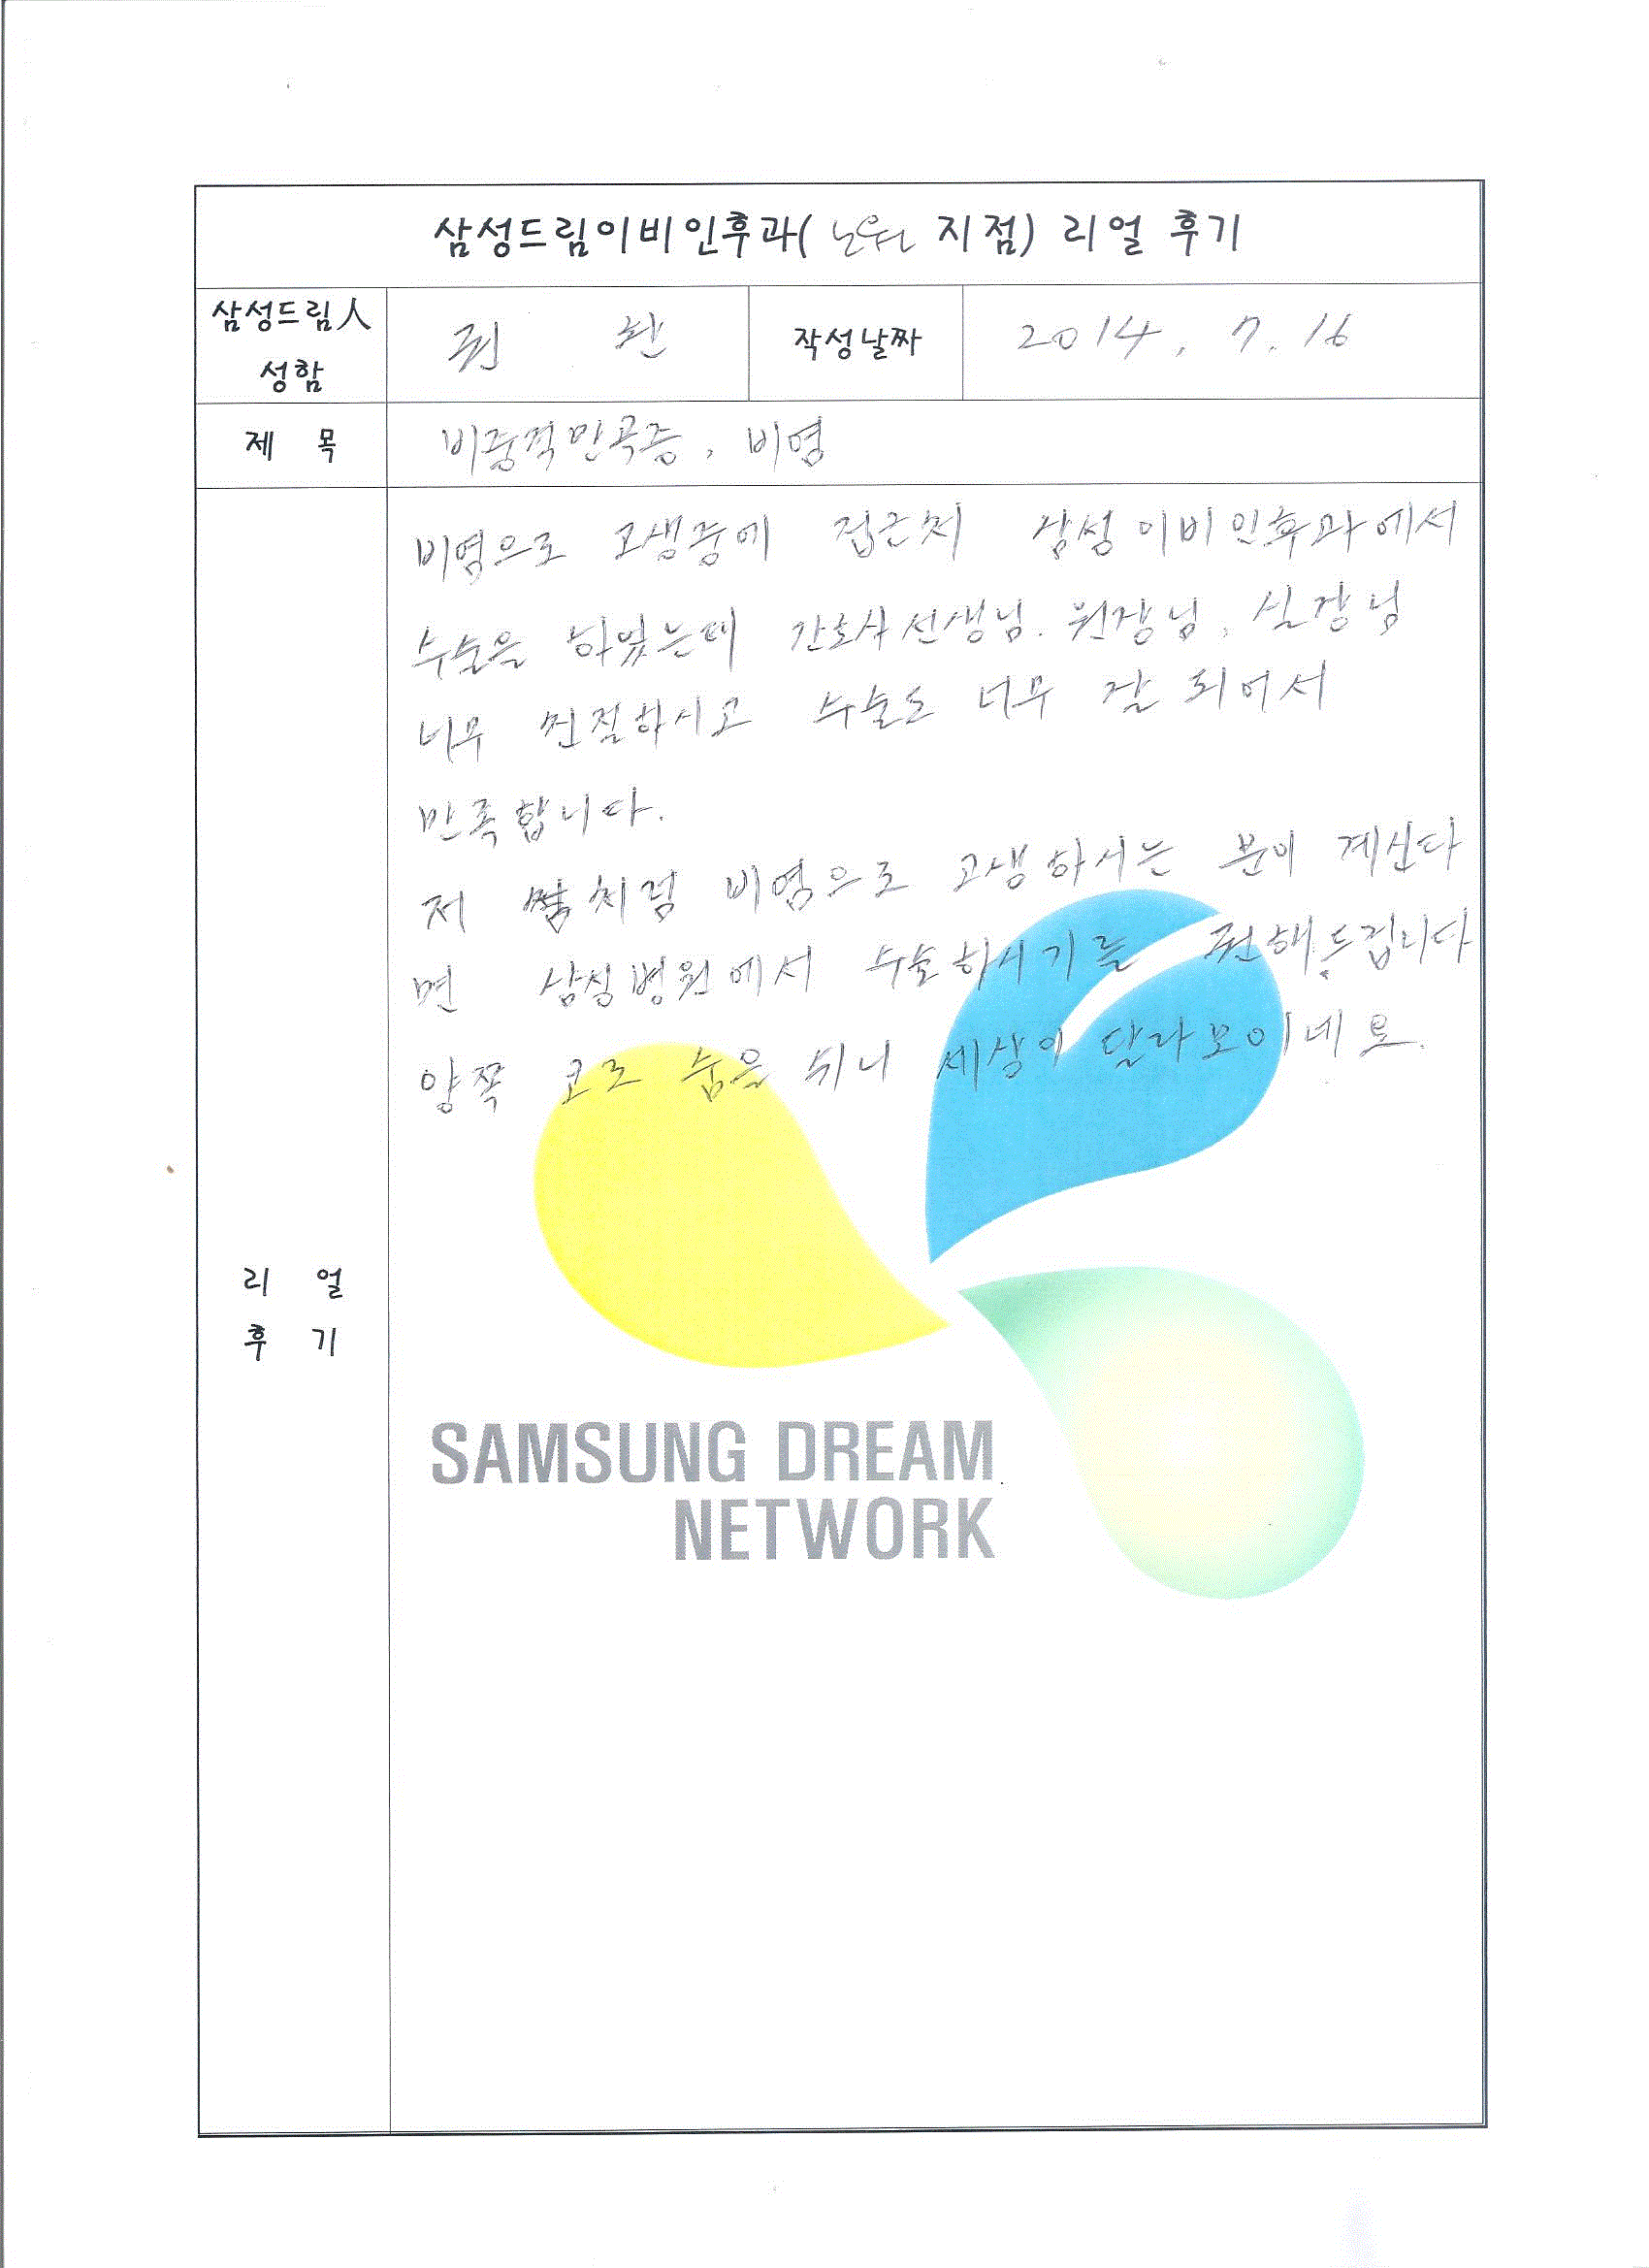 삼성드림이비인후과( 노원 지점) 리얼 후기
삼성드림人 성함
권 환
작성날짜
2014. 7. 16
제 목
비중격만곡증, 비염
비염으로 고생중에 집근처 삼성이비인후과에서
수술을 하였는데 간호사선생님. 원장님, 실장님
너무 친절하시고 수술도 너무 잘 되어서
만족합니다.
저 처럼 비염으로 고생하시는 분이 계신다
면 삼성병원에서 수술하시기를 권해드립니다
양쪽 코로 숨을 쉬니 세상이 달라보이네요.
리 얼
후 기
SAMSUNG DREAM
NETWORK